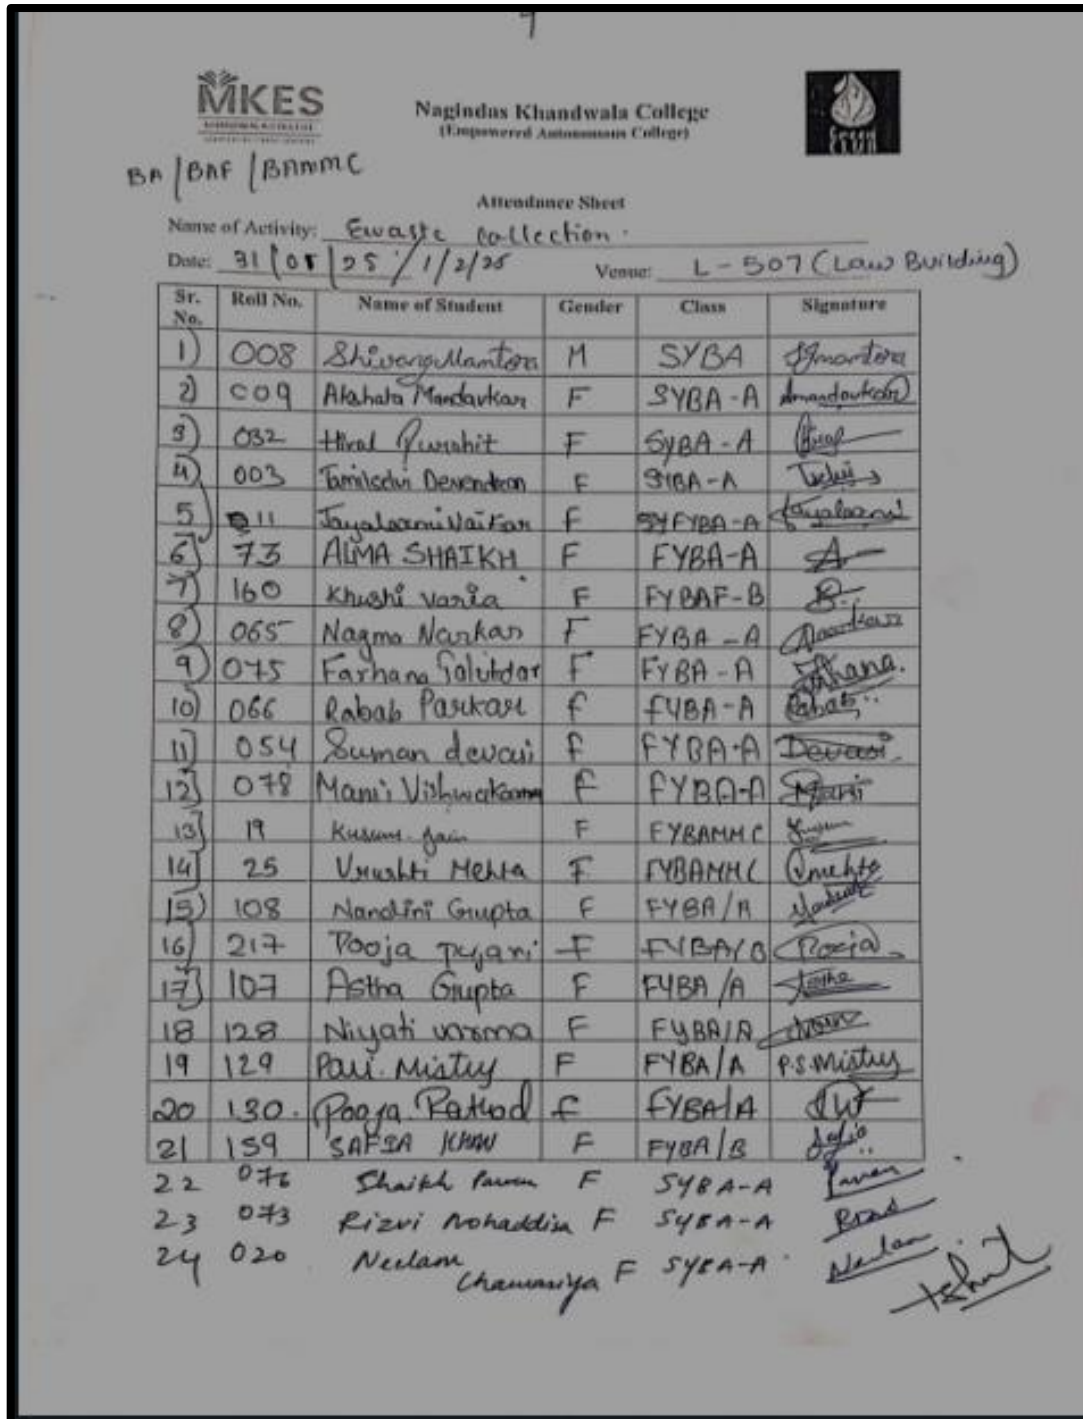 7
MKES
Nagindas Khandwala College
(Empowered Autonomous College)
Green CLUB
BA/BAF/BAMMC
Attendance Sheet
Name of Activity: Ewaste collection.
Date: 31/01/25 / 1/2/25 Venue: L-507 (Law Building)
Sr. No. Roll No. Name of Student Gender Class Signature
1) 008 Shivang Mantora M SYBA
2) 009 Akshata Mandavkar F SYBA-A Amandavkar
3) 032 Hiral Purohit F SYBA-A
4) 003 Tamilselvi Devendran F SYBA-A
5) 011 F SY FYBA-A
6) 73 ALMA SHAIKH F FYBA-A A
7) 160 Khushi varia F FYBAF-B
8) 065 Nagma Narkar F FYBA-A
9) 075 Farhana Talukdar F FYBA-A Farhana.
10) 066 Rabab Parkar f FYBA-A Rabab
11) 054 Suman devasi f FYBA-A Devasi
12) 078 Vishwakarma f FYBA-A
13) 19 Kusum Jain F FYBAMMC
14) 25 Vrushti Mehta F FYBAMMC Vmehta
15) 108 Nandini Gupta F FYBA/A
16) 217 Pooja pujari F FYBA/B Pooja
17) 107 Astha Gupta F FYBA/A Astha
18 128 Niyati varma F FYBA/A
19 129 Pari. Mistry F FYBA/A P.S.Mistry
20 130. Pooja Rathod f FYBA/A
21 159 SAFIA KHAN F FYBA/B Safia
22 076 Shaikh F SYBA-A
23 073 Rizvi Mohaddisa F SYBA-A
24 020 Neelam Chaurasiya F SYBA-A Neelam